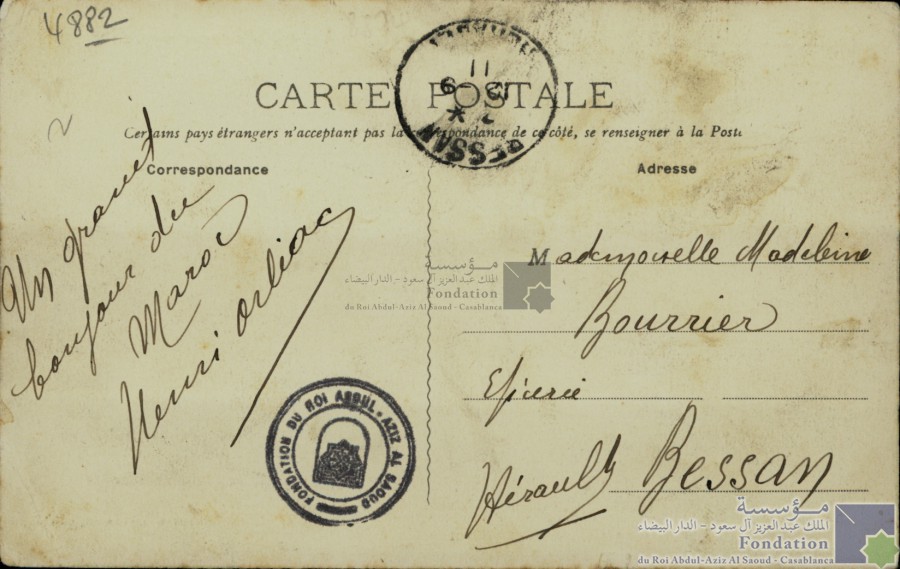 4882
CARTE POSTALE
Certains pays étrangers n'acceptent pas la correspondance de ce côté, se renseigner à la Poste
Correspondance
Un grand
bonjour du
Maroc
Henri Orliac
Adresse
Mademoiselle Madeleine
Bourrier
Epicerie
Bessan
Hérault
BESSAN
11
FONDATION DU ROI ABDUL-AZIZ AL SAOUD
مؤسسة
الملك عبد العزيز آل سعود - الدار البيضاء
Fondation
du Roi Abdul-Aziz Al Saoud - Casablanca
مؤسسة
الملك عبد العزيز آل سعود - الدار البيضاء
Fondation
du Roi Abdul-Aziz Al Saoud - Casablanca